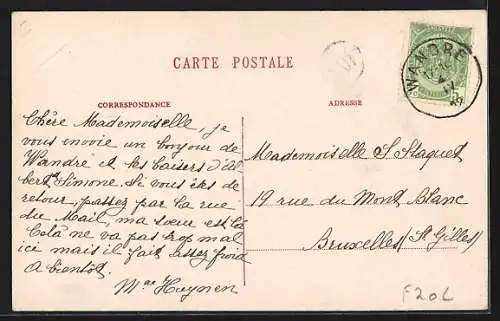 CARTE POSTALE
CORRESPONDANCE
ADRESSE
WANDRE
Chère Mademoiselle, je
vous envoie un bonjour de
Wandre et les baisers d'Al
bert Simone. Si vous êtes de
retour, passez par la rue
du Mail, ma sœur est là
Celà ne va pas trop mal
ici mais il fait assez froid
A bientôt.
Mme Huynen
Mademoiselle S Staquet
19 rue du Mont Blanc
Bruxelles (St Gilles)
F20L